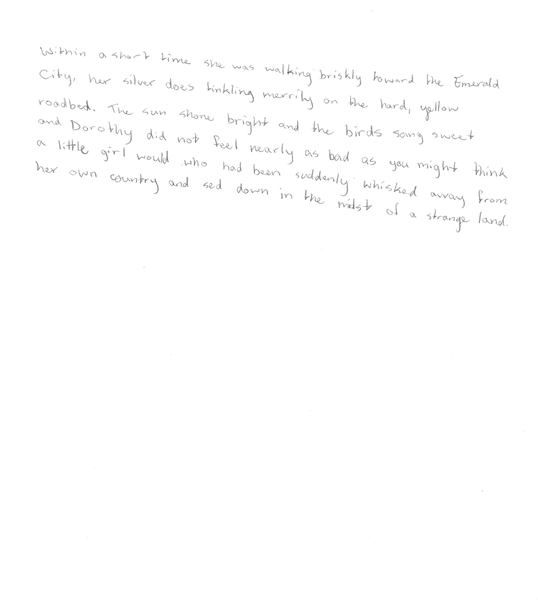 Within a short time she was walking briskly toward the Emerald
City, her silver does tinkling merrily on the hard, yellow
roadbed. The sun shone bright and the birds song sweet
and Dorothy did not feel nearly as bad as you might think
a little girl would who had been suddenly whisked away from
her own country and sed down in the midst of a strange land.